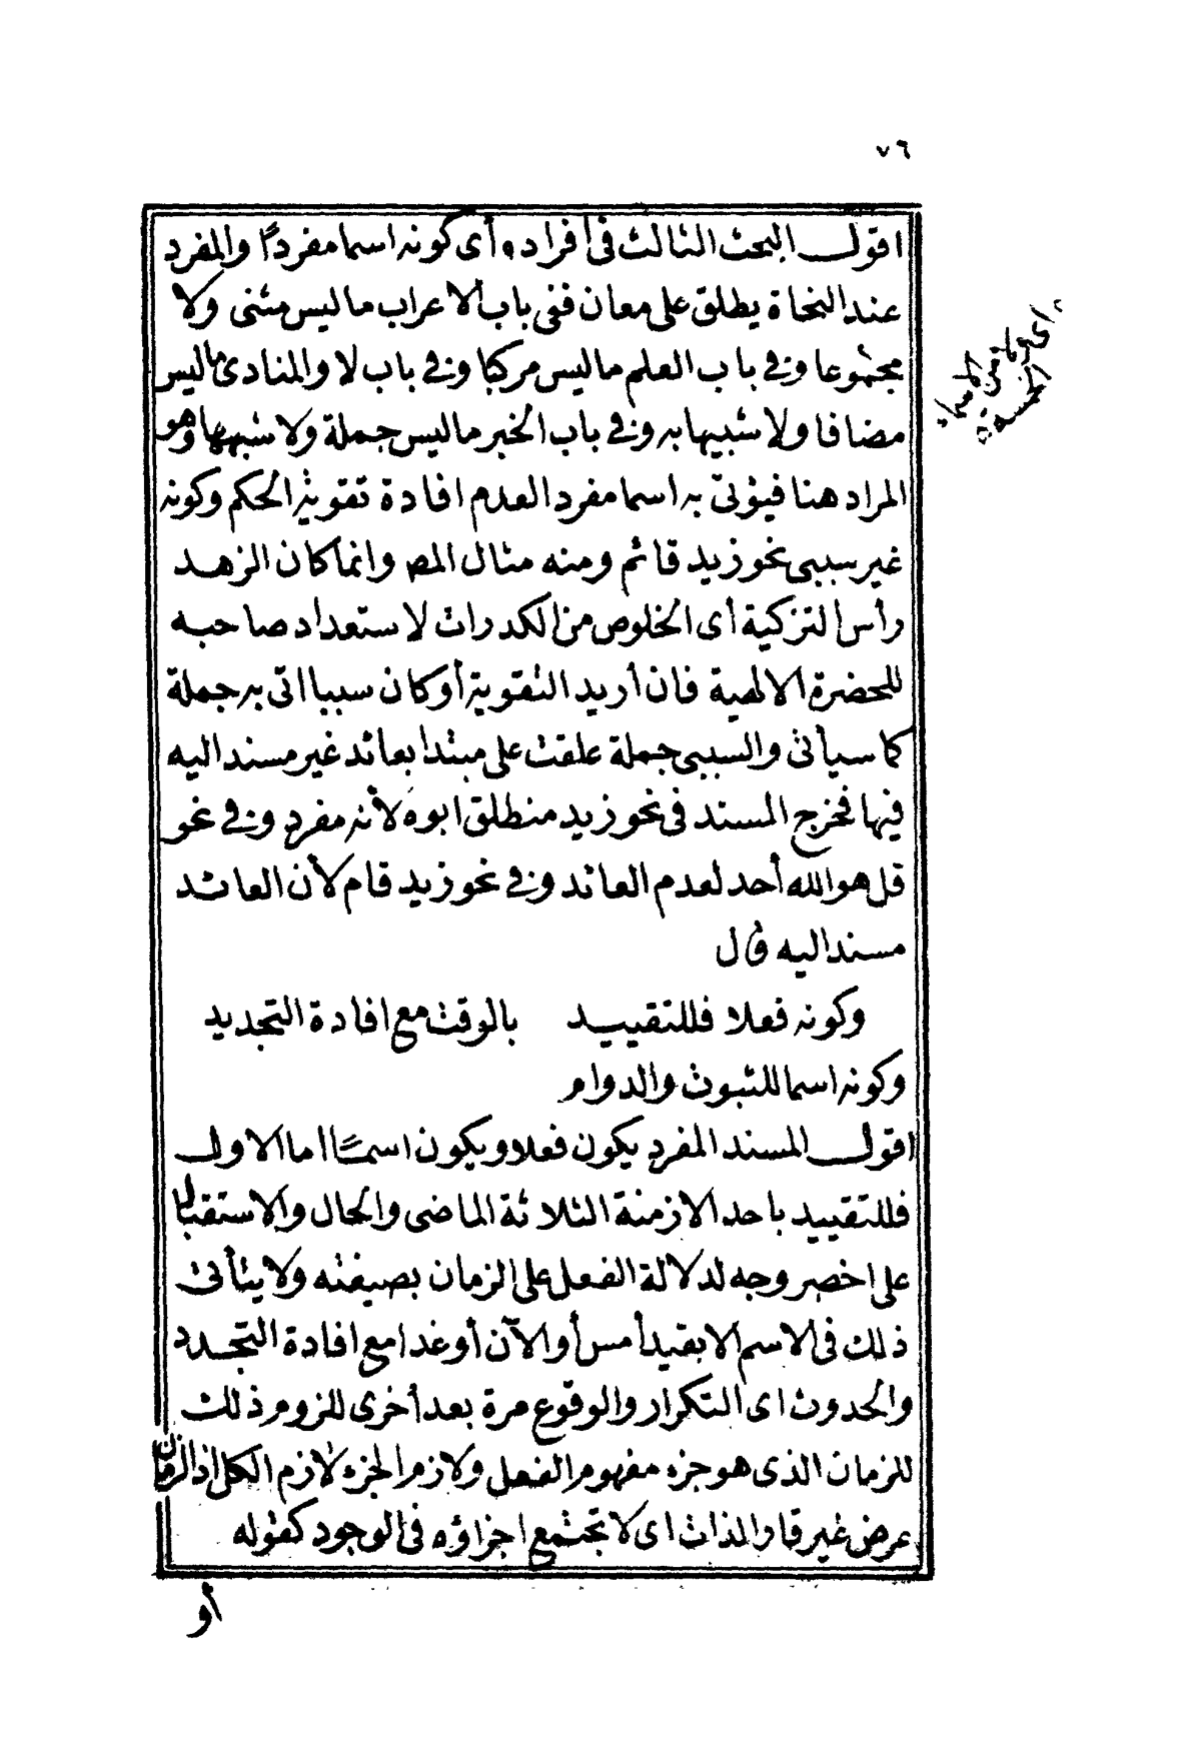 ٧٦
اقول البحث الثالث في أفراده أى كونه اسما مفردًا والمفرد
عند النحاة يطلق على معان ففى باب ألاعراب ماليس مثنى ولا
مجموعا وفى باب العلم ماليس مركبا وفى باب لا والمنادى ماليس
مضافا ولا شبيها به وفى باب الخبر ماليس جملة ولا شبهها وهو
المراد هنا فيؤتى به اسما مفرد العدم افادة تقوية الحكم وكونه
غير سببى نحو زيد قائم ومنه مثال المص وانما كان الزهد
رأس التزكية أى الخلوص من الكدرات لاستعداد صاحبه
للحضرة الالهية فان أريد التقوية أو كان سببيا اتى به جملة
كما سيأتى والسببى جملة علقت على مبتدا بعائد غير مسند اليه
فيها فخرج المسند فى نحو زيد منطلق ابوه لأنه مفرد وفى نحو
قل هو الله أحد لعدم العائد وفى نحو زيد قام لأن العائد
مسند اليه قال
وكونه فعلا فللتقييد بالوقت مع افادة التجديد
وكونه اسما للثبوت والدوام
اقول المسند المفرد يكون فعلا ويكون اسمًا اما الاول
فللتقييد باحد الازمنة الثلاثة الماضى والحال والاستقبال
على اخصر وجه لدلالة الفعل على الزمان بصيغته ولا يتأتى
ذلك فى الاسم الا بقيد أمس أو الآن أو غدا مع افادة التجدد
والحدوث اى التكرار والوقوع مرة بعد أخرى للزوم ذلك
للزمان الذى هو جزء مفهوم الفعل ولازم الجزء لازم الكل اذ الزمان
عرض غير قار الذات اى لا تجتمع اجزاؤه فى الوجود كقوله
أو